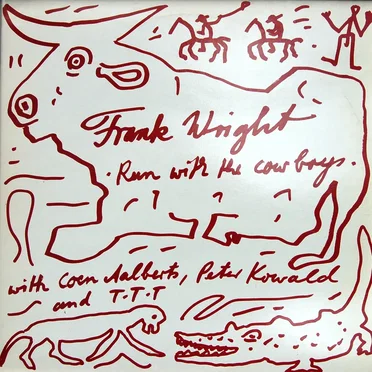 Frank Wright
. Run with the cowboys .
with Coen Aalberts, Peter Kowald
and T.T.T